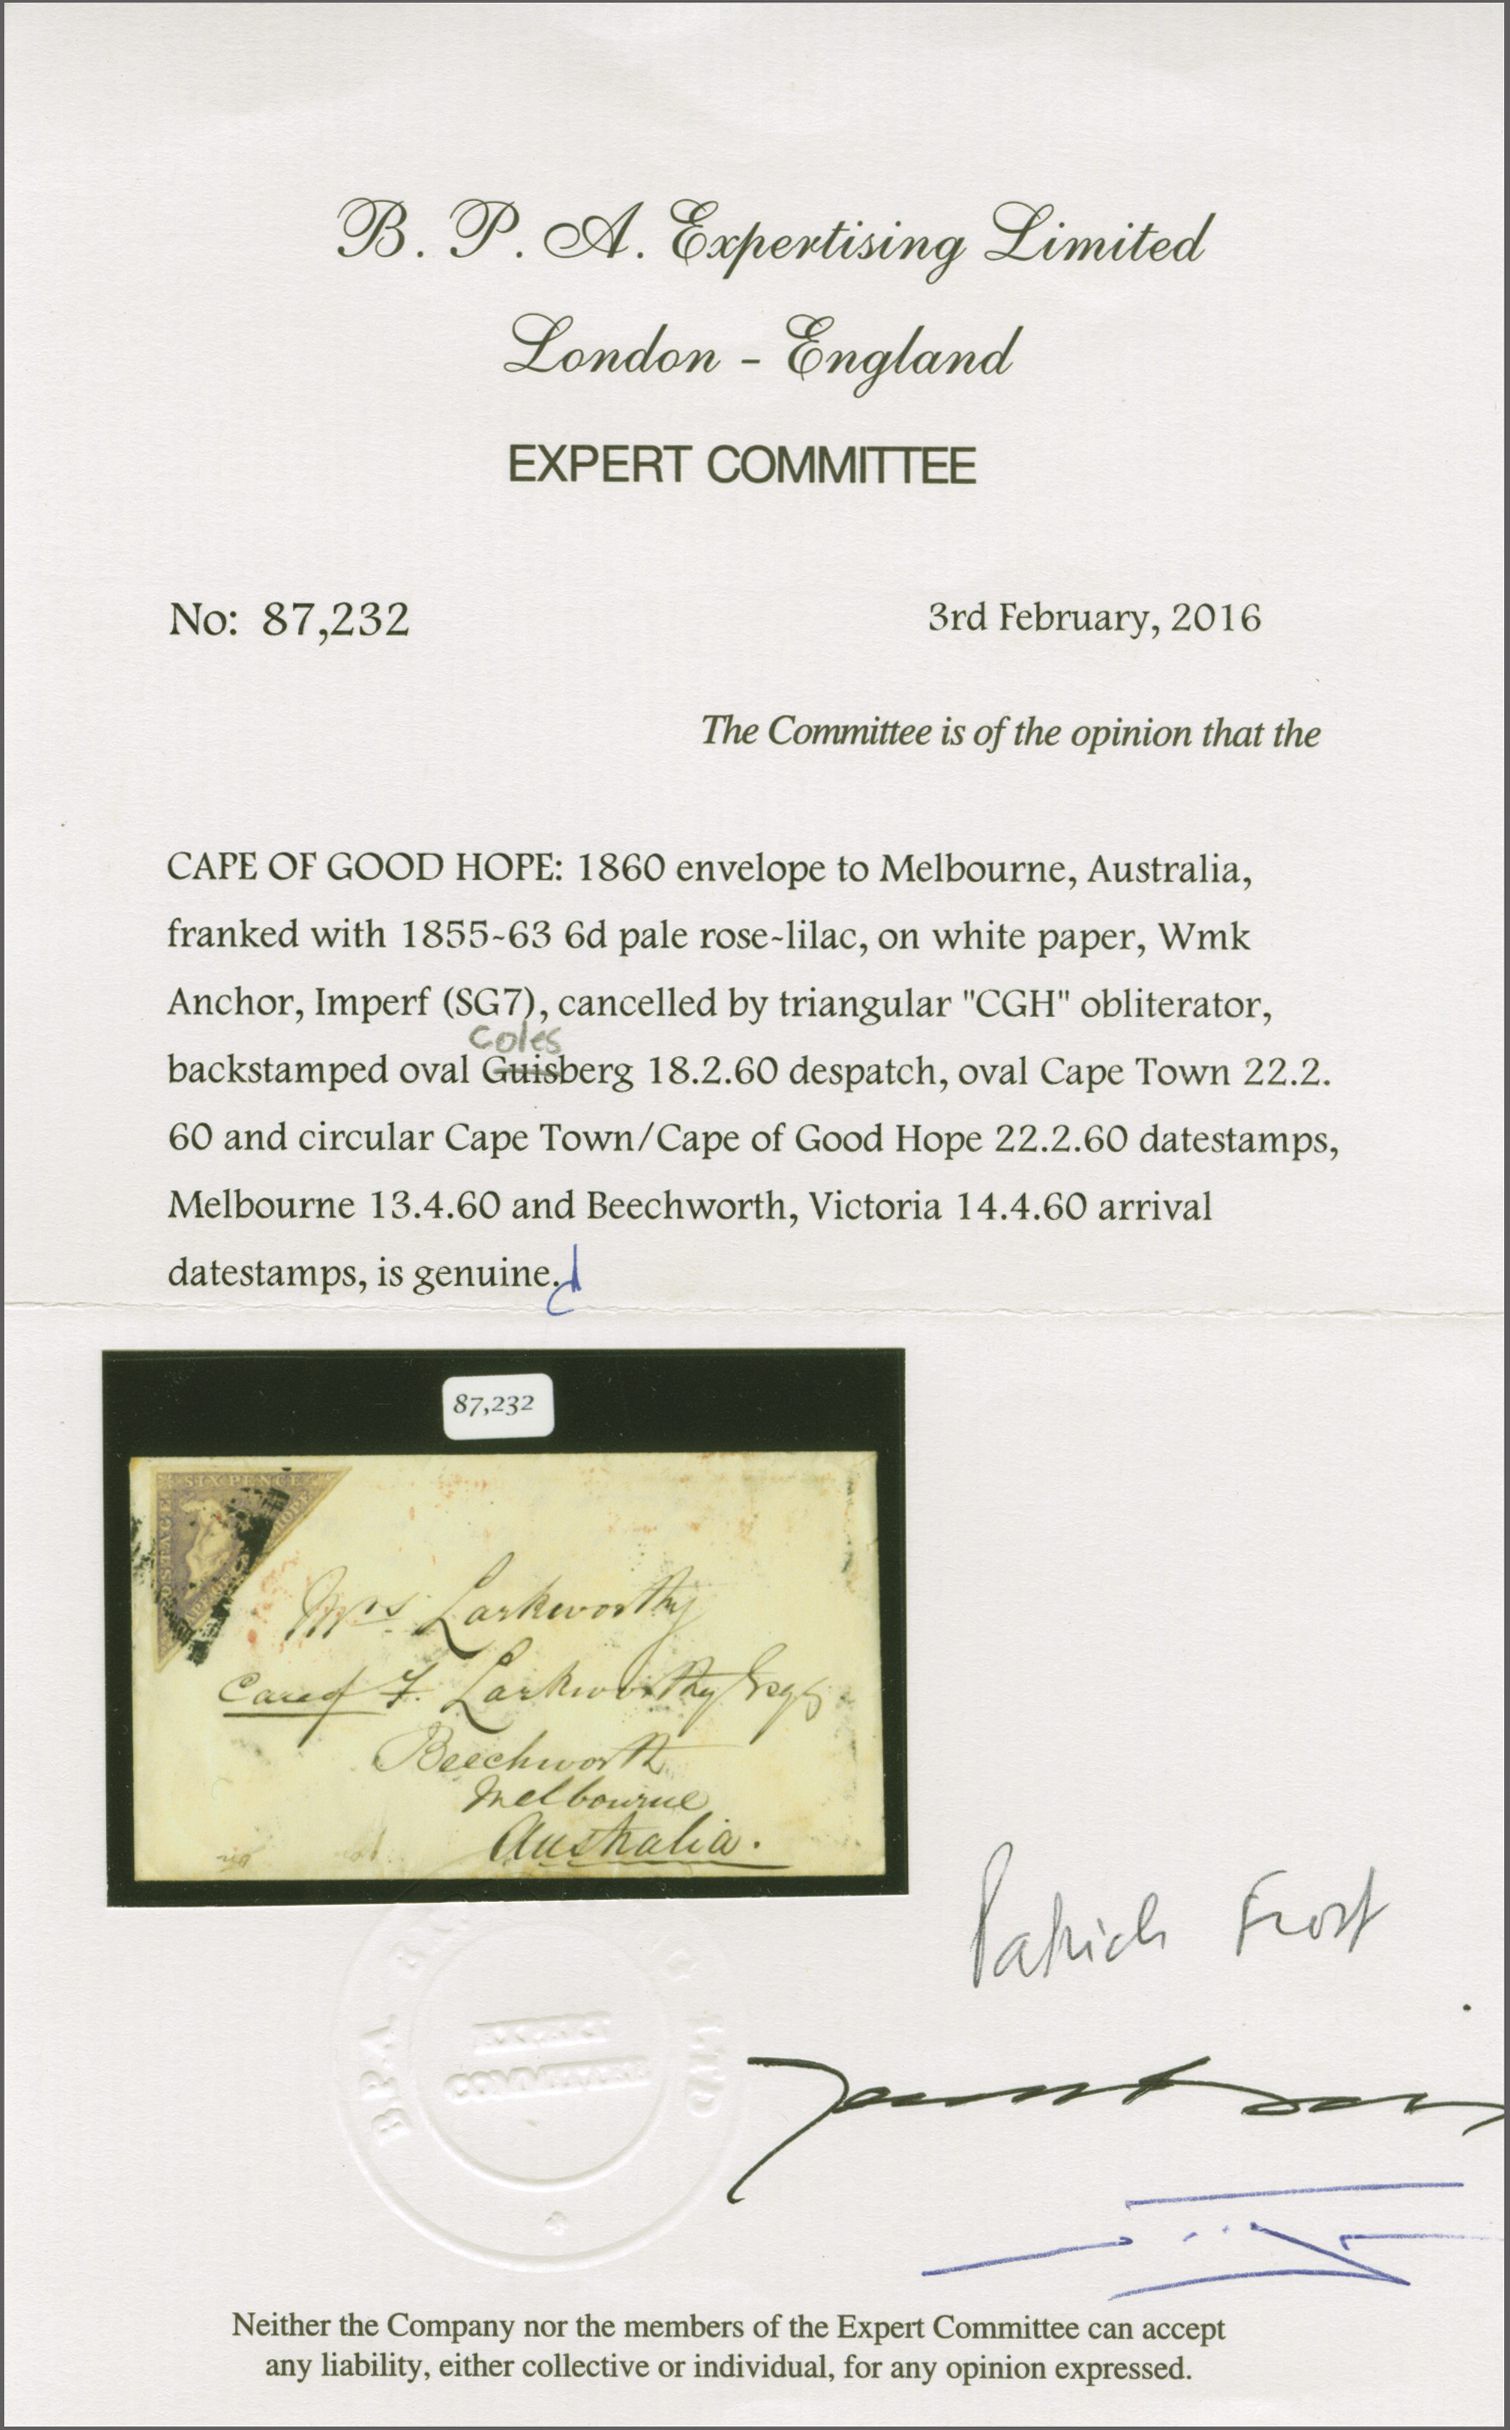 B. P. A. Expertising Limited
London - England
EXPERT COMMITTEE
No: 87,232
3rd February, 2016
The Committee is of the opinion that the
CAPE OF GOOD HOPE: 1860 envelope to Melbourne, Australia,
franked with 1855-63 6d pale rose-lilac, on white paper, Wmk
Anchor, Imperf (SG7), cancelled by triangular "CGH" obliterator,
Coles
backstamped oval Guisberg 18.2.60 despatch, oval Cape Town 22.2.
60 and circular Cape Town/Cape of Good Hope 22.2.60 datestamps,
Melbourne 13.4.60 and Beechworth, Victoria 14.4.60 arrival
datestamps, is genuine.
87,232
SIX PENCE
POSTAGE
HOPE
Mrs. Larkworthy
Care of F. Larkworthy Esqr
Beechworth
Melbourne
Australia.
Patrick Frost
B.P.A.
EXPERT
COMMITTEE
LTD
Neither the Company nor the members of the Expert Committee can accept
any liability, either collective or individual, for any opinion expressed.